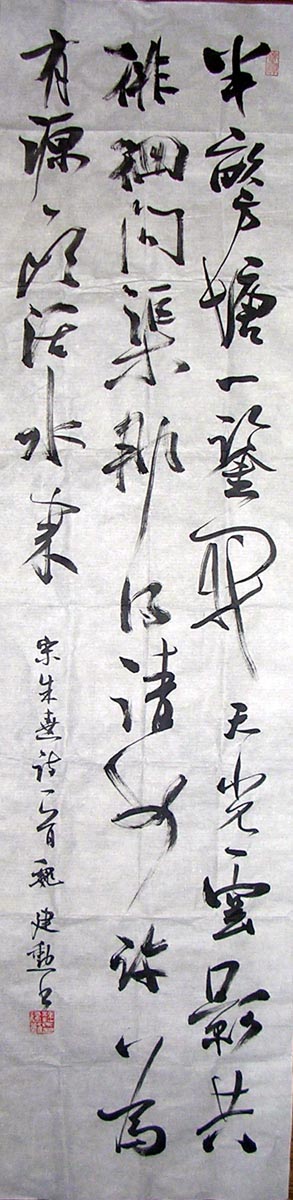 半畝方塘一鑒開天光雲影共
徘徊問渠那得清如許為
有源頭活水來
宋朱熹詩一首魏建勳書